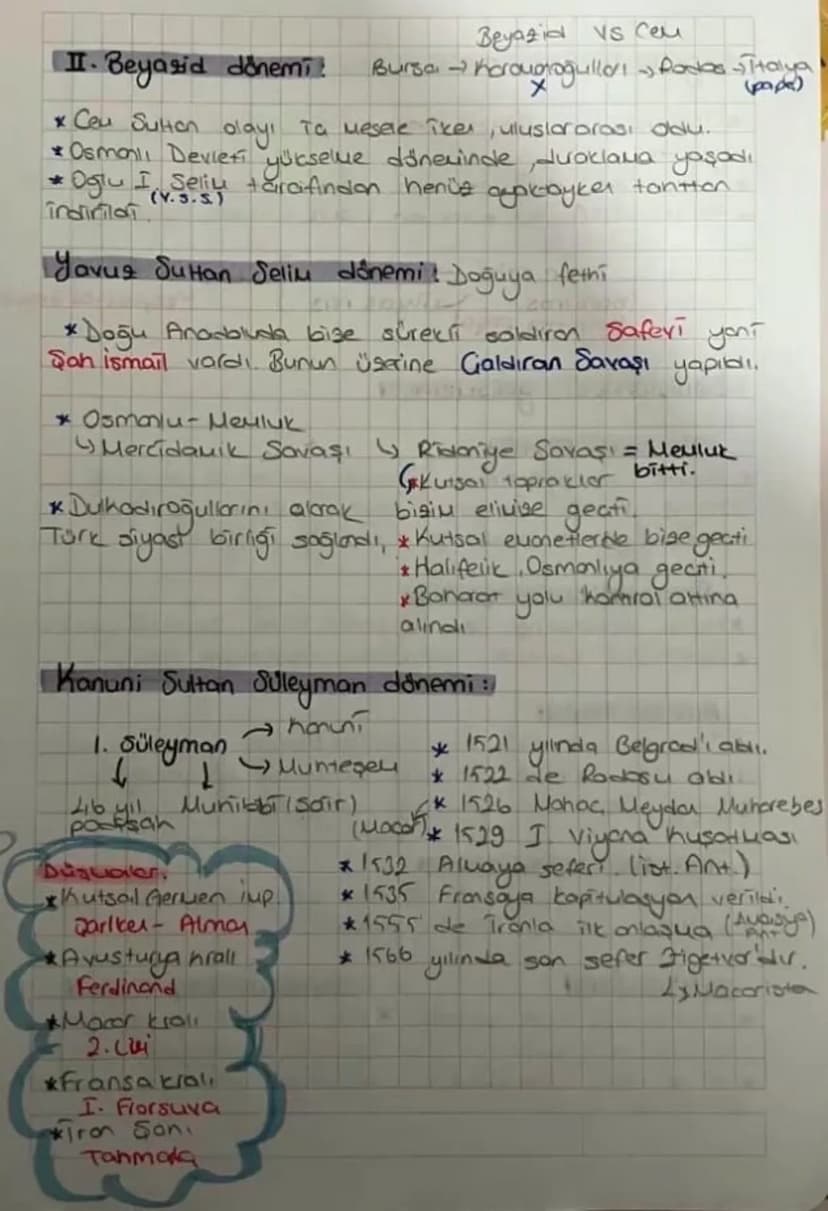 Beyazid vs Cem
II. Beyazid dönemi: Bursa → Karamanoğulları → Rodos → İtalya
x (papa)
* Cem Sultan olayı iç mesele iken, uluslararası oldu.
* Osmanlı Devleti yükselme döneminde, duraklama yaşadı
* Oğlu I. Selim tarafından henüz hayattayken tahttan
(Y.S.S)
indirildi.
Yavuz Sultan Selim dönemi: Doğuya fethi
* Doğu Anadoluda bize sürekli saldıran Safevi yani
Şah ismail vardı. Bunun üzerine Çaldıran Savaşı yapıldı.
* Osmanlu - Memluk
↳ Mercidabık Savaşı ↳ Ridaniye Savaşı = Memluk
bitti.
* Kutsal topraklar
* Dulkadiroğullarını alarak bizim elimize geçti.
Türk siyasi birliği sağlandı, * Kutsal emanetlerde bize geçti
* Halifelik Osmanlıya geçti.
* Baharat yolu kontrol altına
alındı
Kanuni Sultan Süleyman dönemi:
1. Süleyman → Kanuni
↳ Muhteşem
46 yıl Muhibbi (şair)
padişah
* 1521 yılında Belgrad'ı aldı.
* 1522 de Rodosu aldı
* 1526 Mohaç Meydan Muharebesi
(Macar) * 1529 I. Viyana Kuşatması
* 1532 Almaya seferi. (ist. Ant.)
* 1535 Fransaya kapitulasyon verildi.
* 1555 de İranla ilk anlaşma (Amasya Ant)
* 1566 yılında son sefer Zigetvar'dır.
↳ Macarista
Düşmanlar:
* Kutsal Germen imp.
Şarlken - Alman
* Avusturya kralı
Ferdinand
* Macar kralı
2. Lui
* Fransa kralı
I. Fransuva
* İran Şahı
Tahmasb